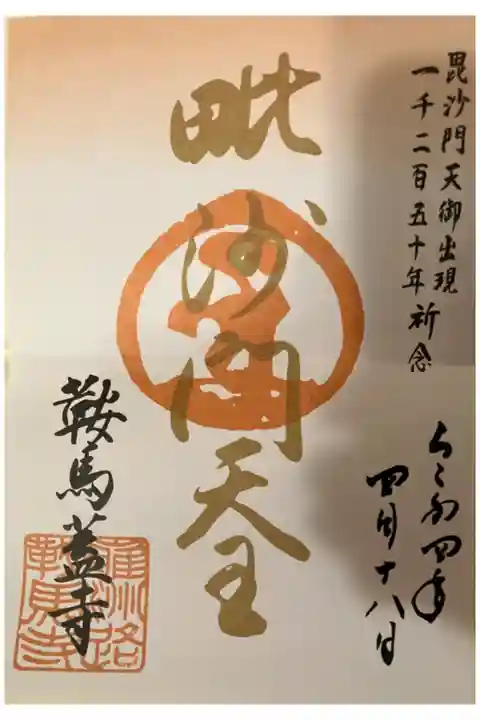 毘沙門天御出現
一千二百五十年祈念
令和四年
四月十八日
毗沙門天王
鞍馬蓋寺
雍州路
鞍馬寺